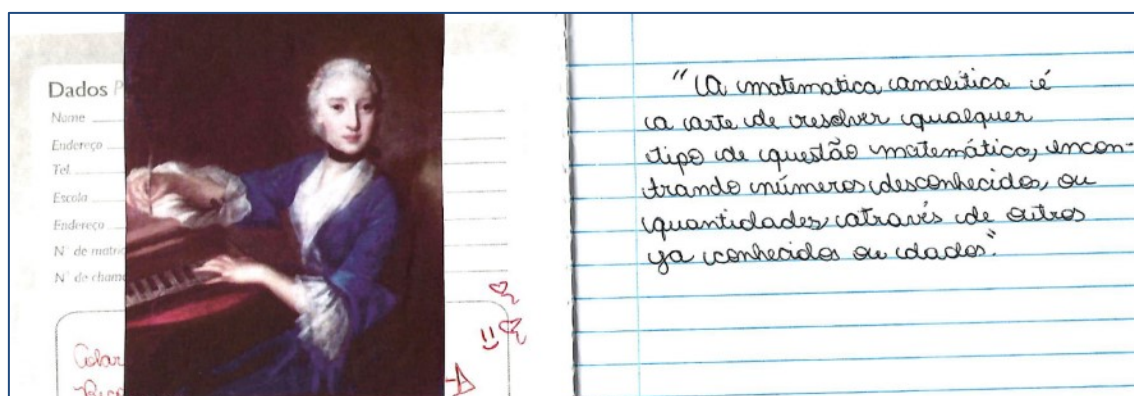 Dados
Nome
Endereço
Tel.
Escola
Endereço
Nº de
Nº de
"A matematica analitica é
a arte de resolver qualquer
tipo de questão matemática, encon-
trando números desconhecidos, ou
quantidades, através de outros
ja conhecidos ou dados."